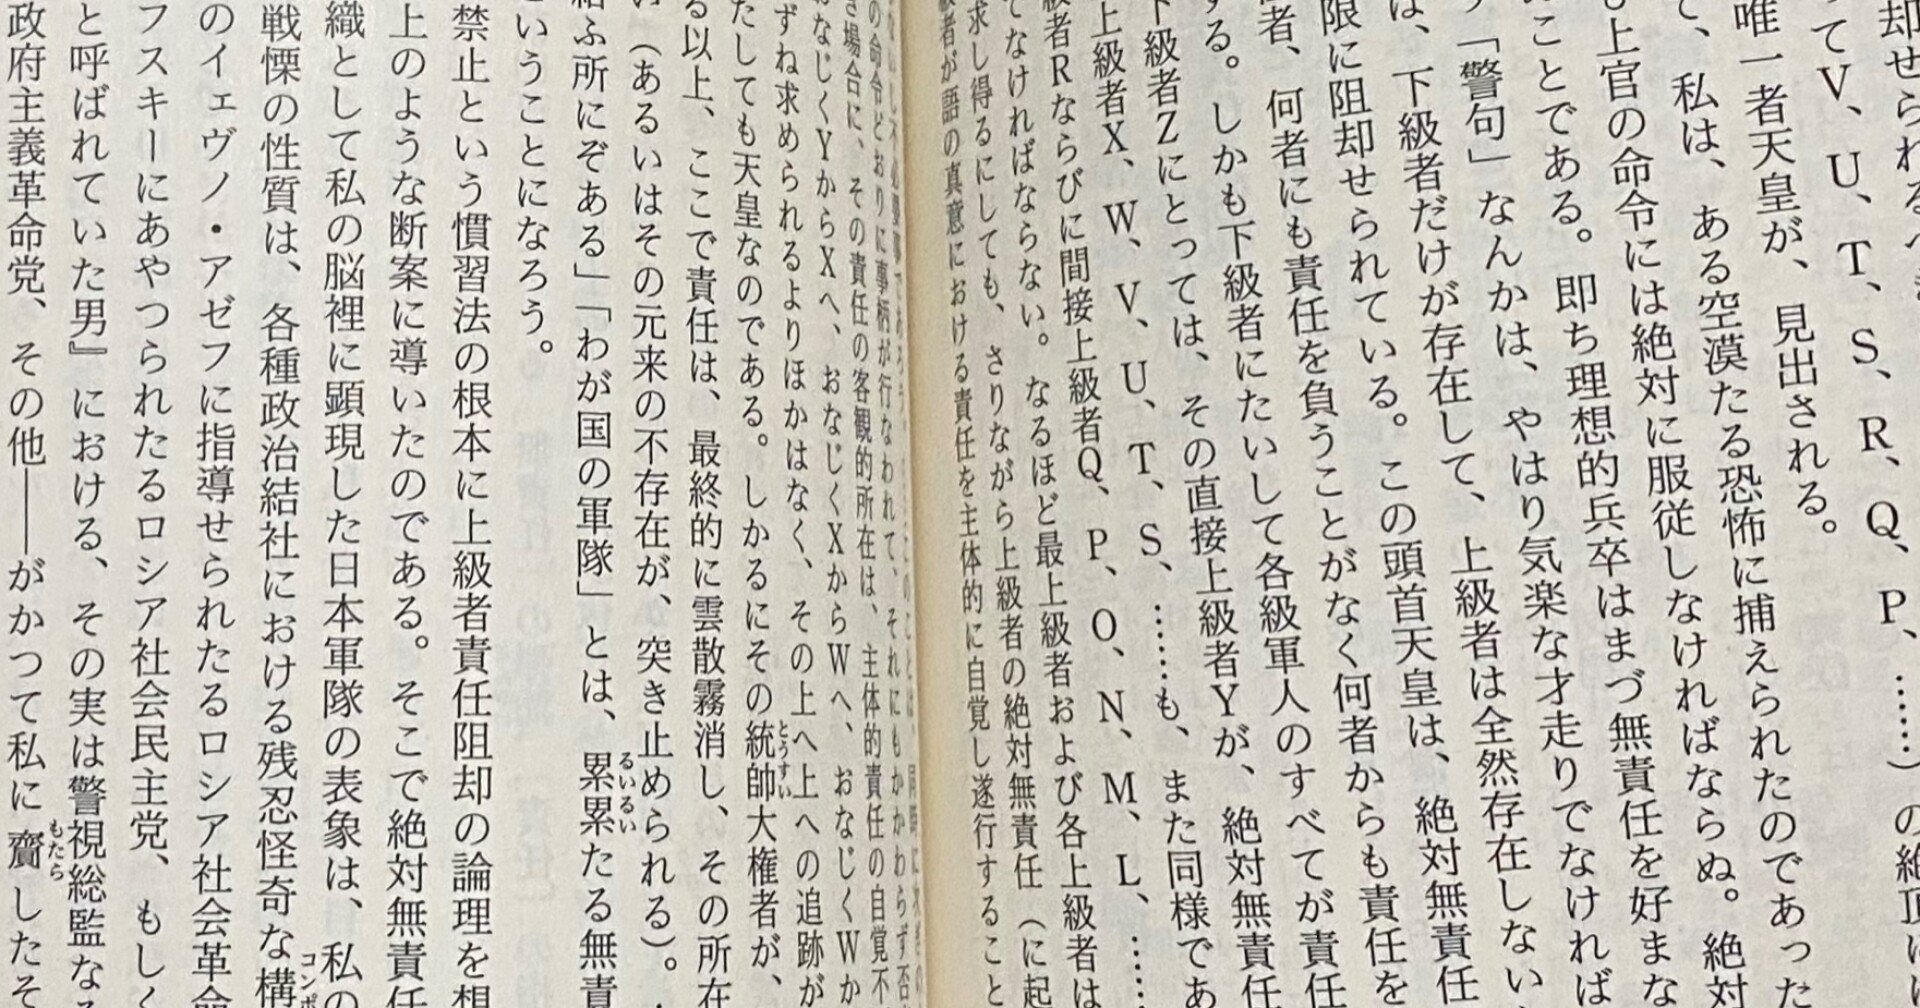 却せられるべき
ってV、U、T、S、R、Q、P、……）の絶頂には
唯一者天皇が、見出される。
て、私は、ある空漠たる恐怖に捕えられたのであった
も上官の命令には絶対に服従しなければならぬ。絶対
ことである。即ち理想的兵卒はまづ無責任を好まな
「警句」なんかは、やはり気楽な才走りでなければ
は、下級者だけが存在して、上級者は全然存在しない
限に阻却せられている。この頭首天皇は、絶対無責任
者、何者にも責任を負うことがなく何者からも責任を
する。しかも下級者にたいして各級軍人のすべてが責任
下級者Zにとっては、その直接上級者Yが、絶対無責任
上級者X、W、V、U、T、S、……も、また同様であ
級者RならびにI間接上級者Q、P、O、N、M、L、……
てなければならない。なるほど最上級者および各上級者は
求し得るにしても、さりながら上級者の絶対無責任（に起
級者が語の真意における責任を主体的に自覚し遂行すること
の命令どおりに事柄が行なわれて、それにもかかわらず否
き場合に、その責任の客観的所在は、主体的責任の自覚不
おなじくYからXへ、おなじくXからWへ、おなじくWか
ずね求められるよりほかはなく、その上へ上への追跡が
たしても天皇なのである。しかるにその統帥大権者が、
る以上、ここで責任は、最終的に雲散霧消し、その所在
い（あるいはその元来の不存在が、突き止められる）。
給ふ所にぞある」「わが国の軍隊」とは、累累たる無責
ということになろう。
禁止という慣習法の根本に上級者責任阻却の論理を想
上のような断案に導いたのである。そこで絶対無責任
織として私の脳裡に顕現した日本軍隊の表象は、私の
戦慄の性質は、各種政治結社における残忍怪奇な構
のイェヴノ・アゼフに指導せられたるロシア社会革命
フスキーにあやつられたるロシア社会民主党、もしく
と呼ばれていた男』における、その実は警視総監なる
政府主義革命党、その他――がかつて私に齎したそ